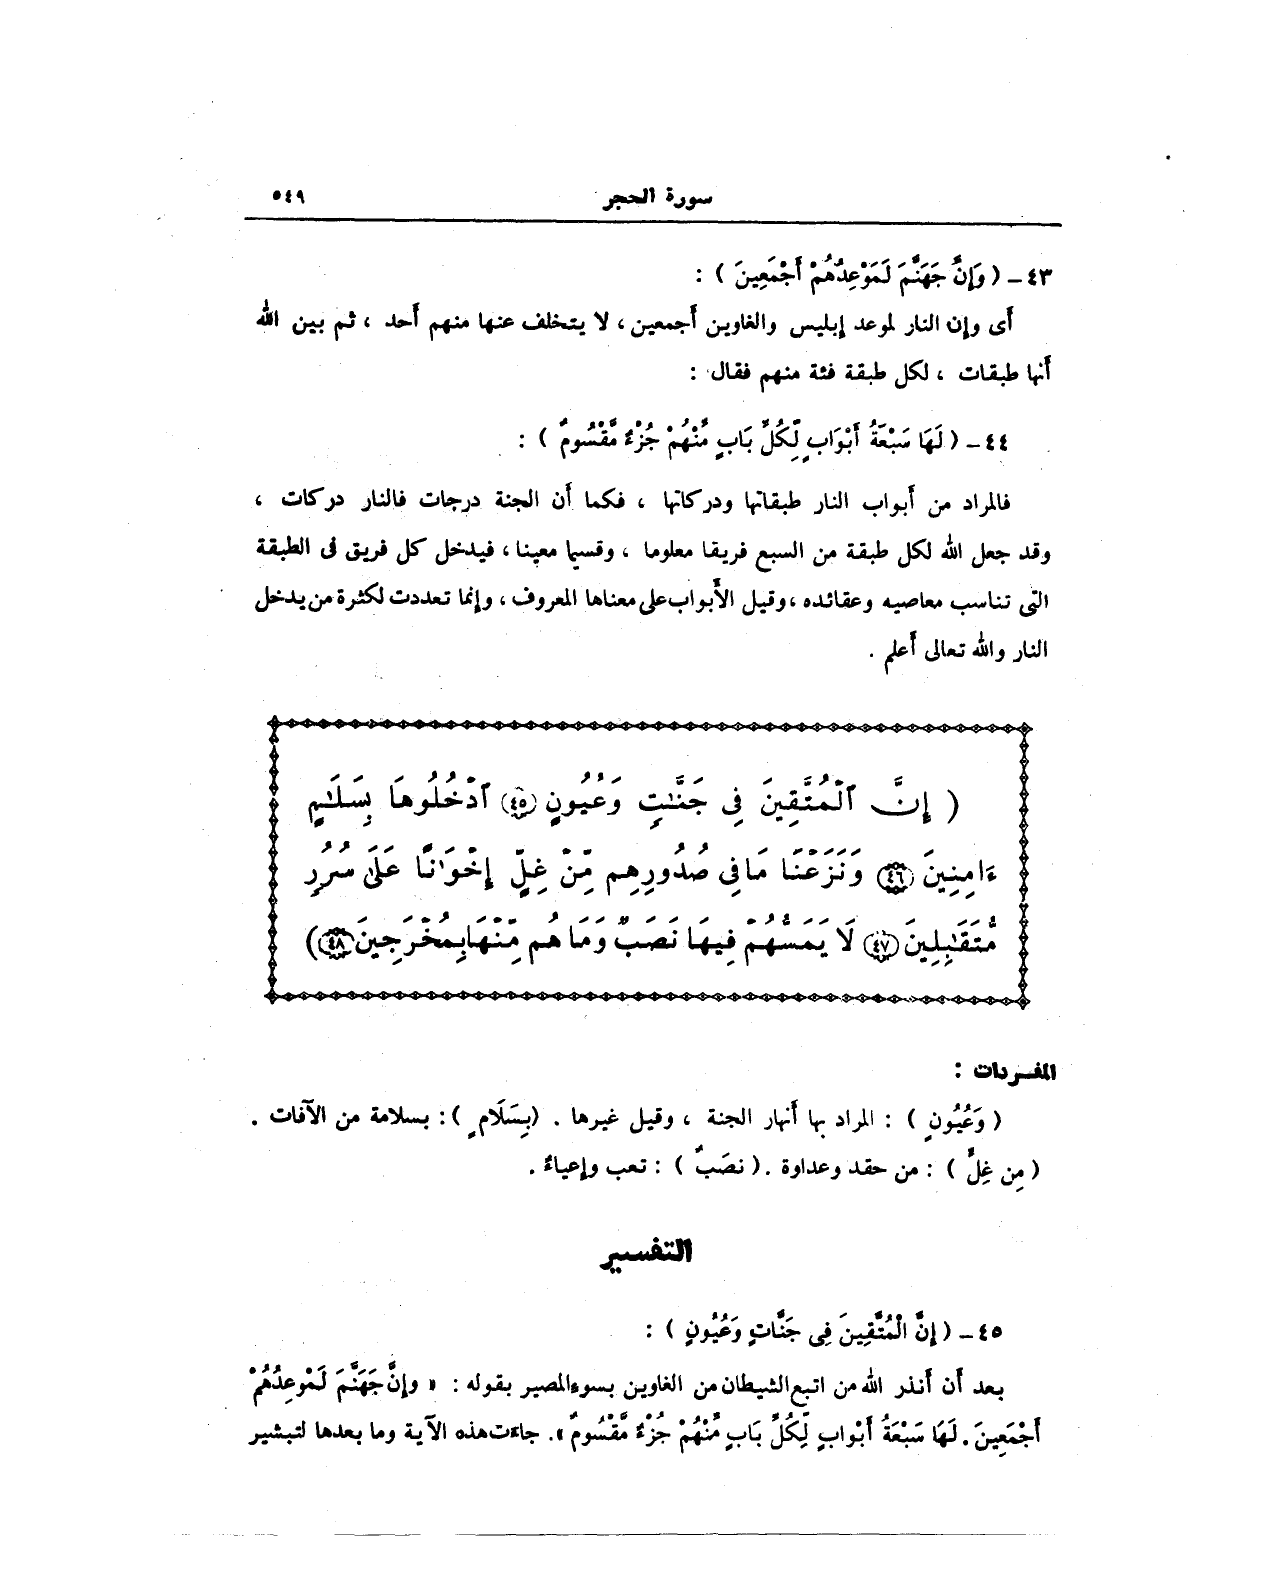 سورة الحجر ٥٤٩
٤٣ – ( وَإِنَّ جَهَنَّمَ لَمَوْعِدُهُمْ أَجْمَعِينَ ) :
أى وإن النار لموعد إبليس والغاوين أجمعين ، لا يتخلف عنها منهم أحد ، ثم بين الله
أنها طبقات ، لكل طبقة فئة منهم فقال :
٤٤ – ( لَهَا سَبْعَةُ أَبْوَابٍ لِّكُلِّ بَابٍ مِّنْهُمْ جُزْءٌ مَّقْسُومٌ ) :
فالمراد من أبواب النار طبقاتها ودركاتها ، فكما أن الجنة درجات فالنار دركات ،
وقد جعل الله لكل طبقة من السبع فريقا معلوما ، وقسيما معينا ، فيدخل كل فريق فى الطبقة
التى تناسب معاصيه وعقائده ، وقيل الأبواب على معناها المعروف ، وإنما تعددت لكثرة من يدخل
النار والله تعالى أعلم .
( إِنَّ ٱلْمُتَّقِينَ فِى جَنَّٰتٍ وَعُيُونٍ ٤٥ ٱدْخُلُوهَا بِسَلَٰمٍ
ءَامِنِينَ ٤٦ وَنَزَعْنَا مَا فِى صُدُورِهِم مِّنْ غِلٍّ إِخْوَٰنًا عَلَىٰ سُرُرٍ
مُّتَقَٰبِلِينَ ٤٧ لَا يَمَسُّهُمْ فِيهَا نَصَبٌ وَمَا هُم مِّنْهَا بِمُخْرَجِينَ ٤٨ )
المفردات :
( وَعُيُونٍ ) : المراد بها أنهار الجنة ، وقيل غيرها . ( بِسَلَامٍ ) : بسلامة من الآفات .
( مِن غِلٍّ ) : من حقد وعداوة . ( نصَبٌ ) : تعب وإعياءٌ .
التفسير
٤٥ – ( إِنَّ الْمُتَّقِينَ فِى جَنَّاتٍ وَعُيُونٍ ) :
بعد أن أنذر الله من اتبع الشيطان من الغاوين بسوء المصير بقوله : « وإِنَّ جَهَنَّمَ لَمَوْعِدُهُمْ
أَجْمَعِينَ . لَهَا سَبْعَةُ أَبْوابٍ لِّكُلِّ بَابٍ مِّنْهُمْ جُزْءٌ مَّقْسُومٌ » . جاءت هذه الآية وما بعدها لتبشير